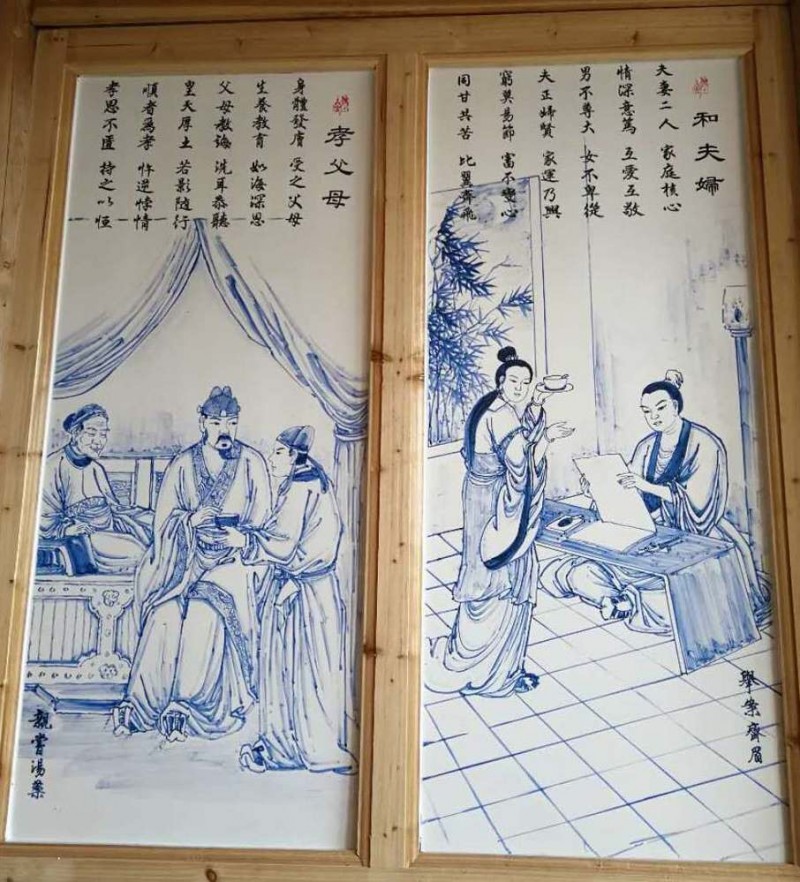 和夫婦
夫妻二人 家庭核心
情深意篤 互愛互敬
男不尊大 女不卑從
夫正婦賢 家運乃興
窮莫易節 富不變心
同甘共苦 比翼齊飛
舉案齊眉
孝父母
身體發膚 受之父母
生養教育 如海深恩
父母教誨 洗耳恭聽
皇天厚土 若影隨行
順者爲孝 忤逆悖情
孝思不匱 持之以恒
親嘗湯藥